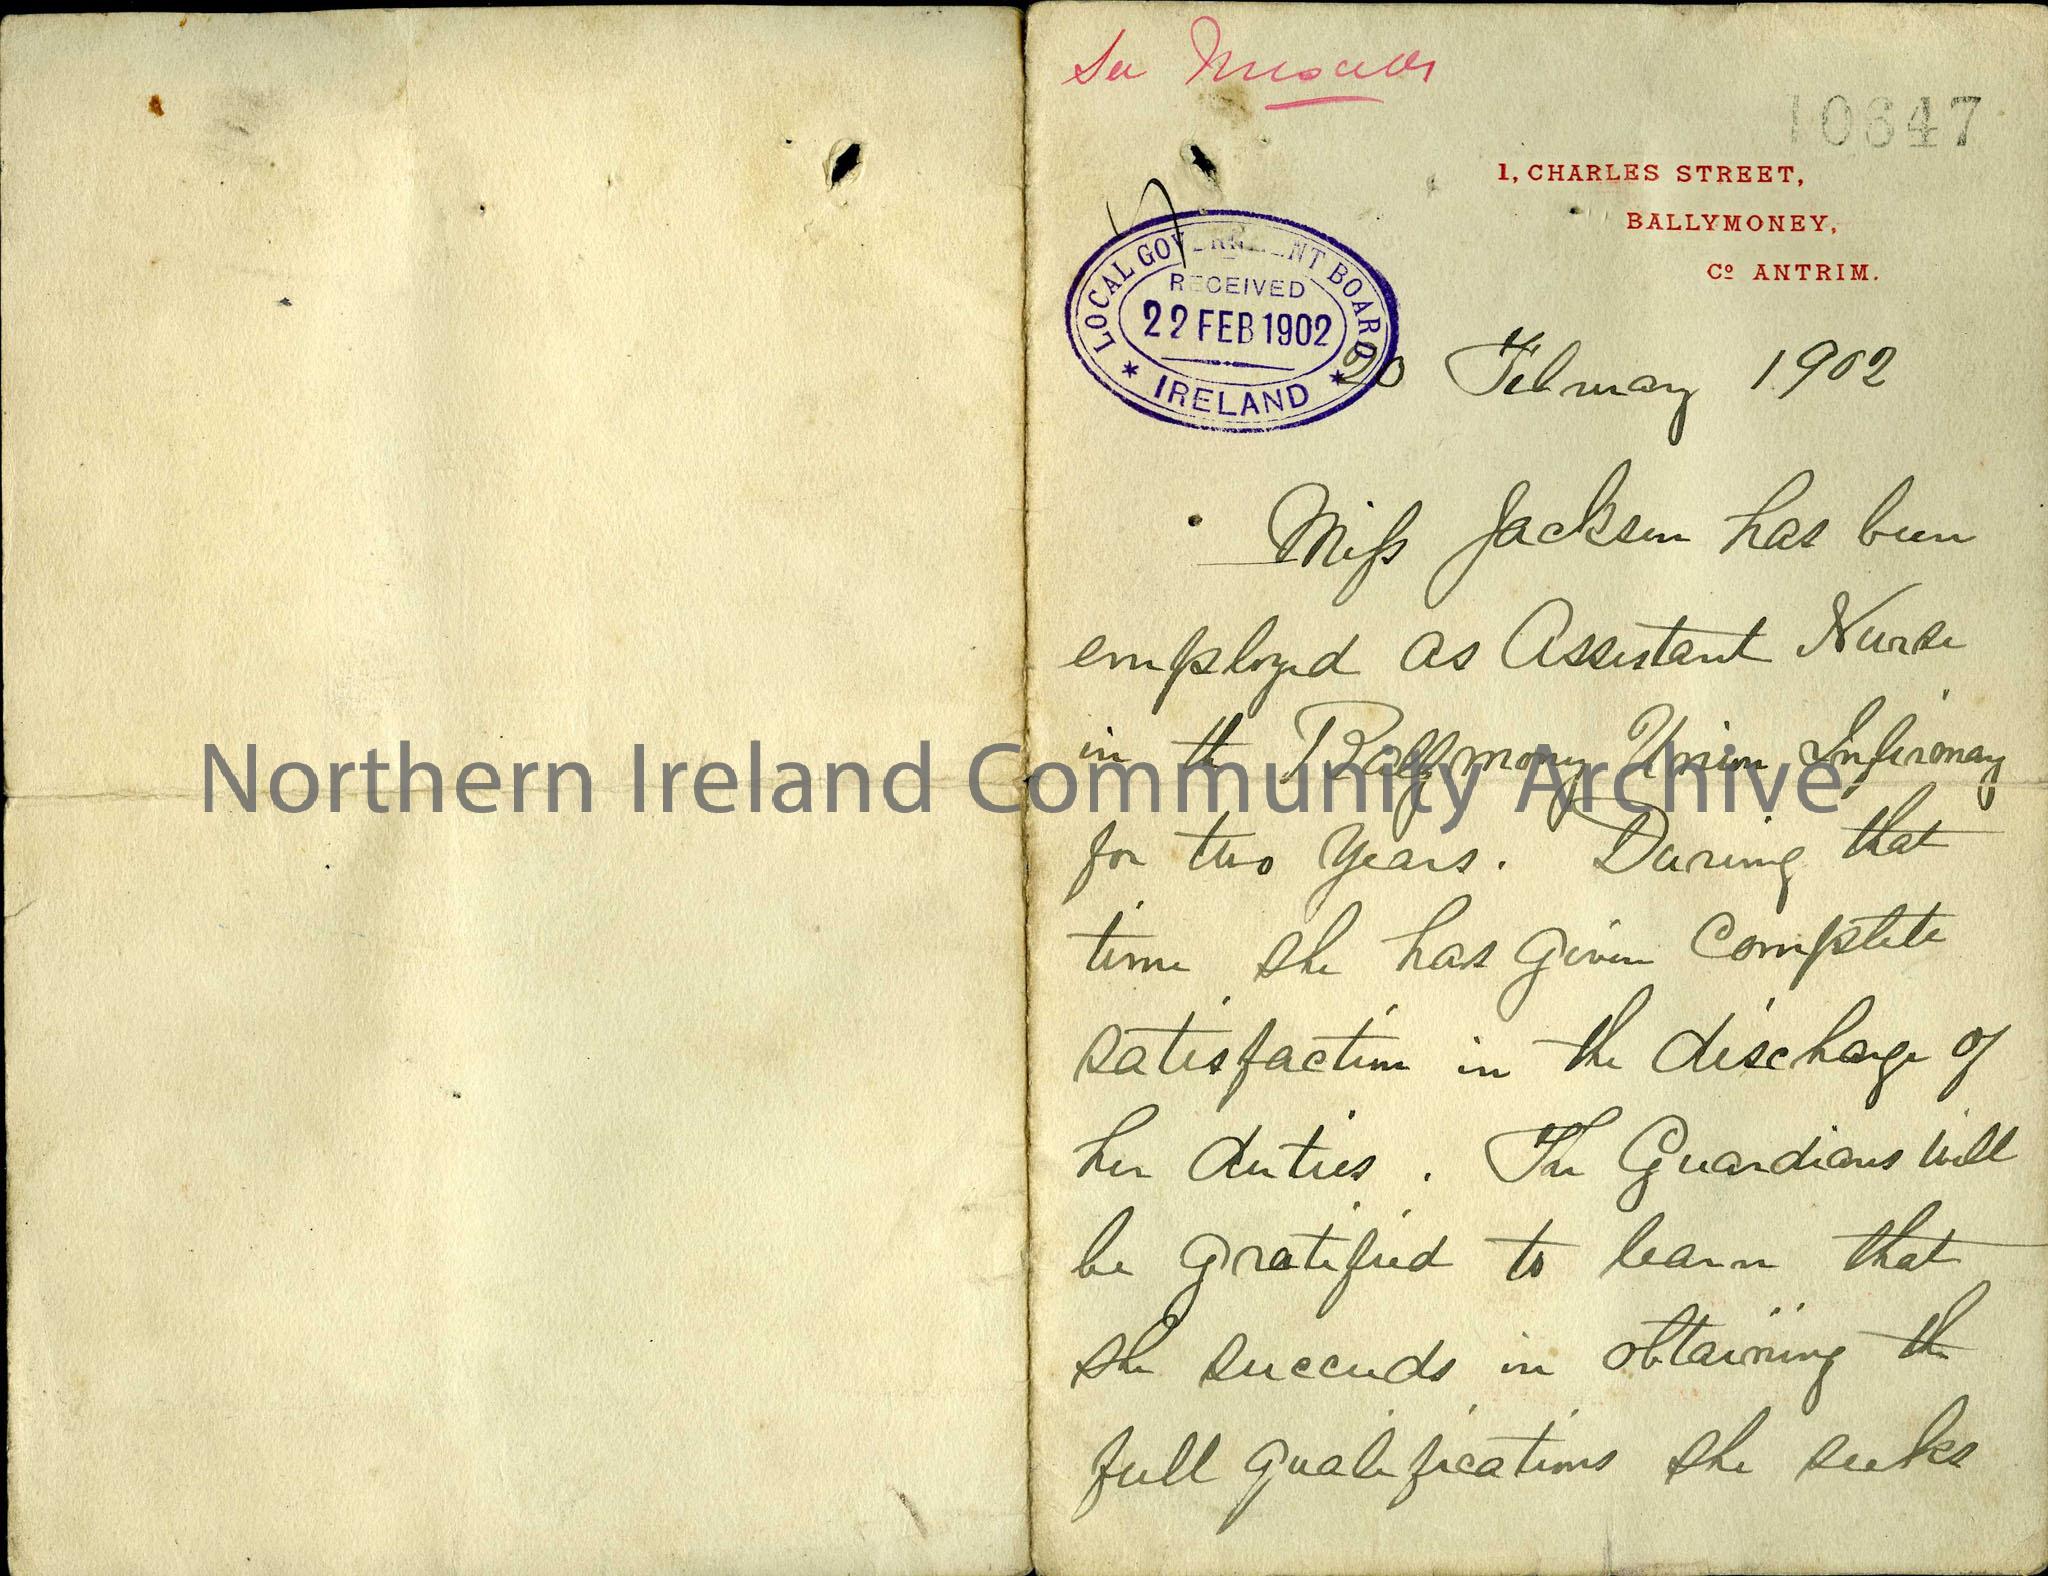 10647
1, CHARLES STREET,
BALLYMONEY,
Cº ANTRIM.
LOCAL GOVERNMENT BOARD
RECEIVED
22 FEB 1902
IRELAND
20 February 1902
Miss Jackson has been
employed as Assistant Nurse
in the Ballymoney Union Infirmary
for two years. During that
time she has given complete
satisfaction in the discharge of
her duties. The Guardians will
be gratified to learn that
she succeeds in obtaining the
full qualifications she seeks
Northern Ireland Community Archive